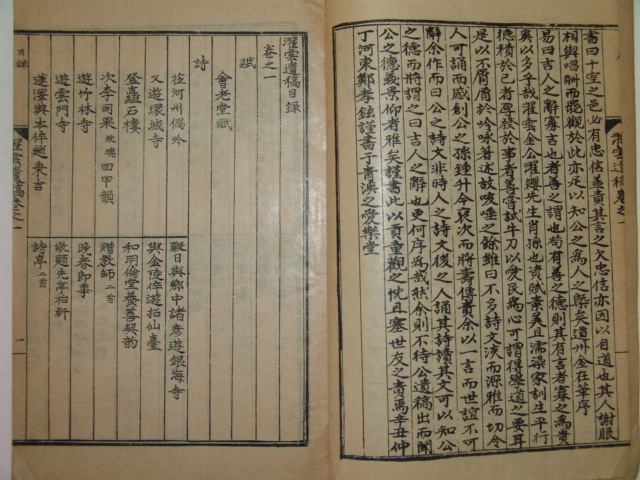 書曰十室之邑必有忠信盖責其言之矣忠信亦因以自道也其人謝眠
相與唱酬而罷觀於此亦足以知公之爲人之槩矣道州金在華序
易曰吉人之辭寡吉也者善之謂也苟有善之德則其有言者寡之爲貴
奚以多乎哉濯雲金公濯纓先生肖孫也資賦素美且濡染家訓生平行
德積於己者
足以不屑屑於吟咏著述故咳唾之餘雖曰不多詩文淡而深雅而切令
人可誦而感創公之孫鍾升令裒次而將壽傳責余以一言而世誼不可
辭余作而曰公之詩文非時人之詩文後之人誦其詩讀其文可以知公
之德而將謂之曰吉人之辭也更何序爲哉然余則不待公遺稿出而聞
公之德義景仰者雅矣謹書此以貢重觀之忱且塞世友之責焉辛丑仲
丁河東鄭孝鉉謹書于靑溪之愛樂堂
濯雲遺稿卷之一
濯雲遺稿目錄
卷之一
賦
會老堂賦
詩
往河州偶吟
暇日與鄕中諸彦遊銀海寺
又遊環城寺
與金陵倅遊招仙臺
登矗石樓
和明倫堂養善契韵
次李司果 回甲韻
贈敎師 二首
遊竹林寺
晩春卽事
遊雲門寺
敬題先亭柏軒
蓮澤與本倅趙秉吉
詩亭 二首
濯雲遺稿卷之一
目錄
一